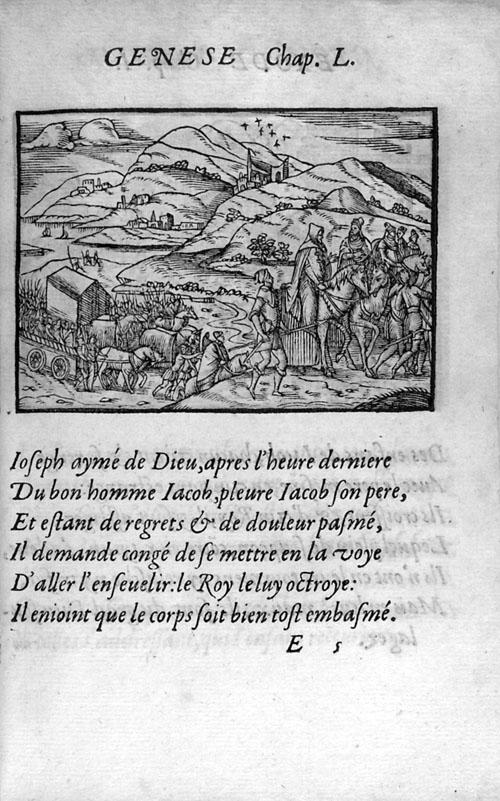 GENESE Chap. L.
Ioseph aymé de Dieu, apres l'heure derniere
Du bon homme Iacob, pleure Iacob son pere,
Et estant de regrets & de douleur pasmé,
Il demande congé de se mettre en la voye
D'aller l'enseuelir: le Roy le luy octroye.
Il enioint que le corps soit bien tost embasmé.
E 5